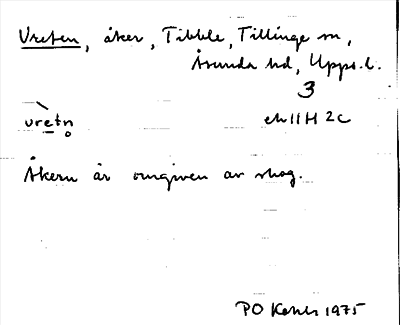 Vreten, åker, Tibble, Tillinge sn,
Åsunda hd, Upps. l.
3
vretn̥ 11H 2c
Åkern är omgiven av skog.
PO 1975